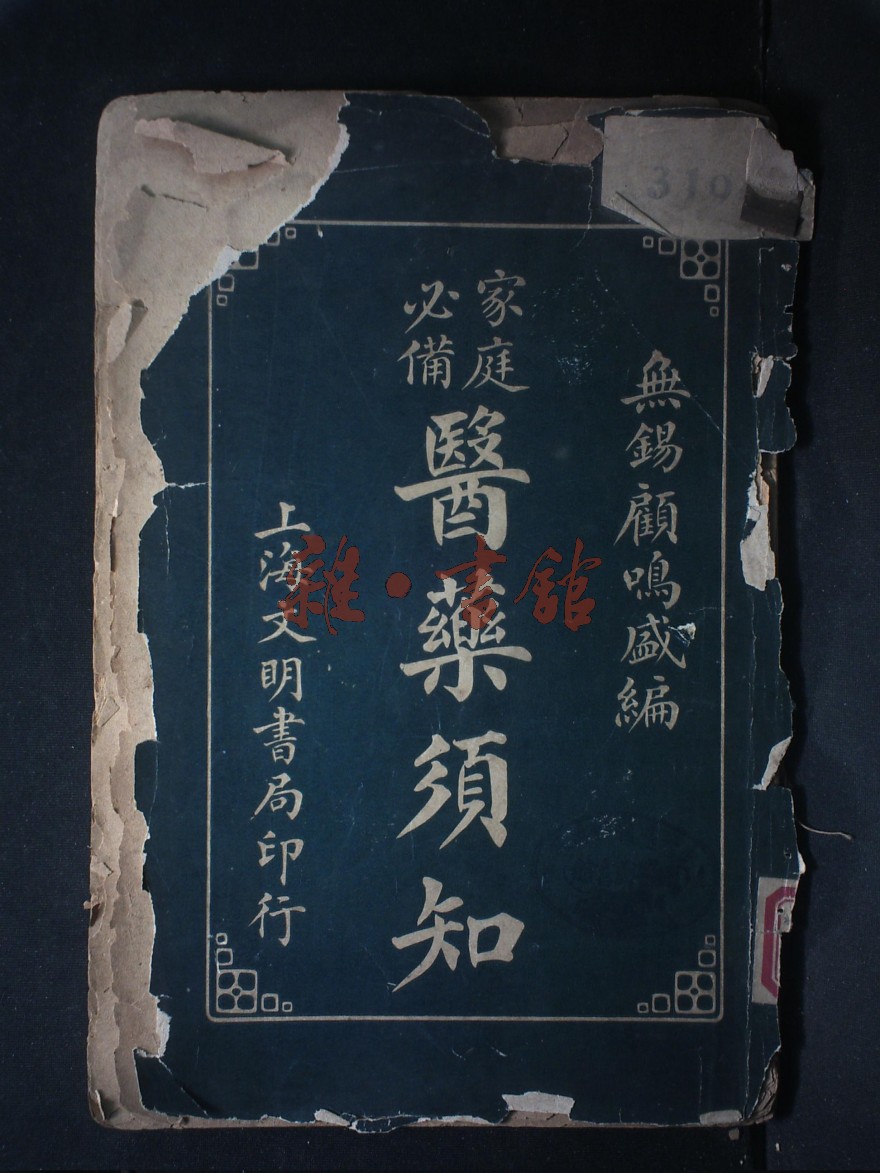 310
無錫顧鳴盛編
家庭
必備
醫藥須知
上海文明書局印行
雜·書館